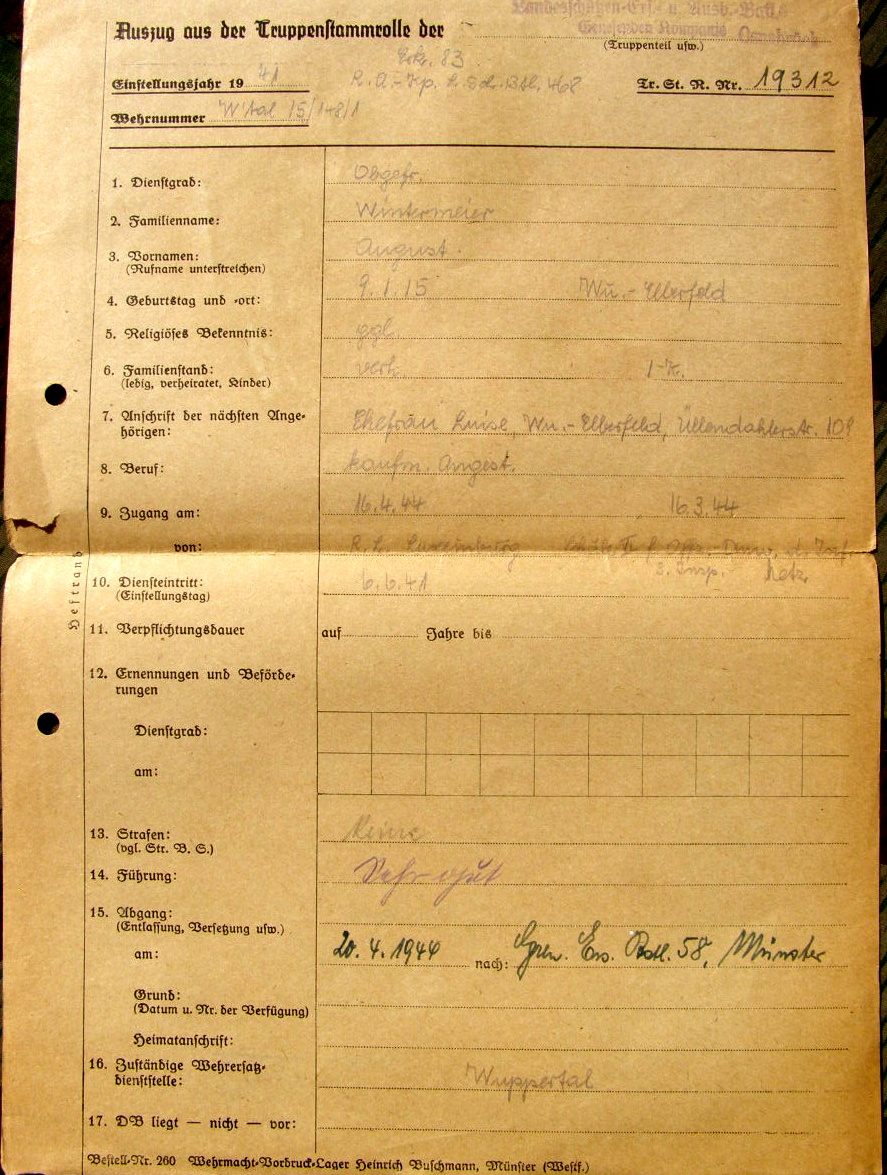 Landesschützen-Ers.- u. Ausb.-Batl. 6
Auszug aus der Truppenstammrolle der
Genesenden Kompanie Osnabrück
(Truppenteil usw.)
Erk. 83
Einstellungsjahr 19 41
L. Sch. Btl. 468
Tr. St. R. Nr. 19312
Wehrnummer W'tal 15/1-8/1
1. Dienstgrad: Obgefr.
2. Familienname: Wintermeier
3. Vornamen: August.
(Rufname unterstreichen)
4. Geburtstag und -ort: 9.1.15 Wu.-Elberfeld
5. Religiöses Bekenntnis: ggl.
6. Familienstand: verh. 1 K.
(ledig, verheiratet, Kinder)
7. Anschrift der nächsten Ange- Ehefrau Luise, Wu.-Elberfeld, Üllendahlerstr. 108
hörigen:
8. Beruf: kaufm. Angest.
9. Zugang am: 16.4.44 16.3.44
von: R. L. Luxemburg
Metz
10. Diensteintritt: 6.6.41
(Einstellungstag)
Heftrand
11. Verpflichtungsdauer auf Jahre bis
12. Ernennungen und Beförde-
rungen
Dienstgrad:
am:
13. Strafen: Keine
(vgl. Str. B. S.)
14. Führung: Sehr gut
15. Abgang:
(Entlassung, Versetzung usw.)
am: 20.4.1944 nach: Gren. Ers. Batl. 58, Münster
Grund:
(Datum u. Nr. der Verfügung)
Heimatanschrift:
16. Zuständige Wehrersatz-
dienststelle: Wuppertal
17. DB liegt — nicht — vor:
Bestell-Nr. 260 Wehrmacht-Vordruck-Lager Heinrich Buschmann, Münster (Westf.)